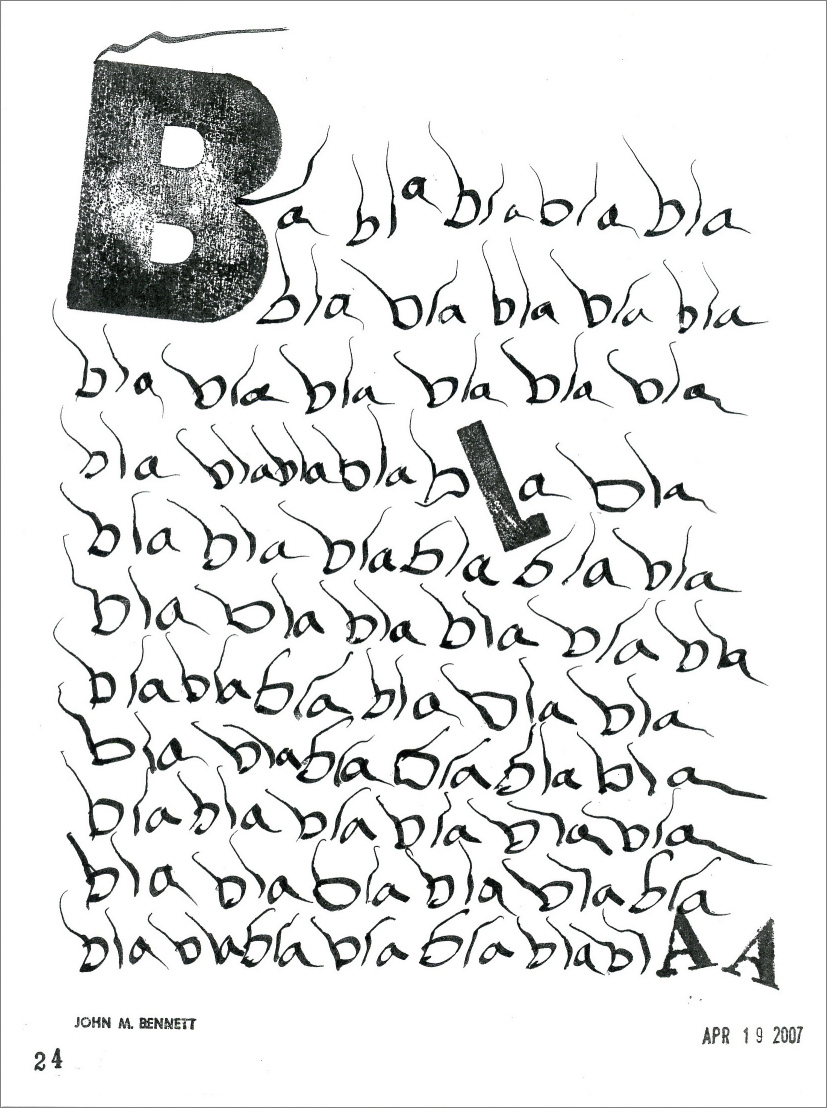 Bla bla bla bla bla
bla bla bla bla bla
bla bla bla bla bla bla
bla blablabla bla bla
bla bla blabla bla bla
bla bla bla bla bla bla
blablabla bla bla bla
bla blabla blabla bla
blabla bla bla bla bla
bla bla bla bla bla bla
bla blabla bla bla blablAA
JOHN M. BENNETT
APR 19 2007
24